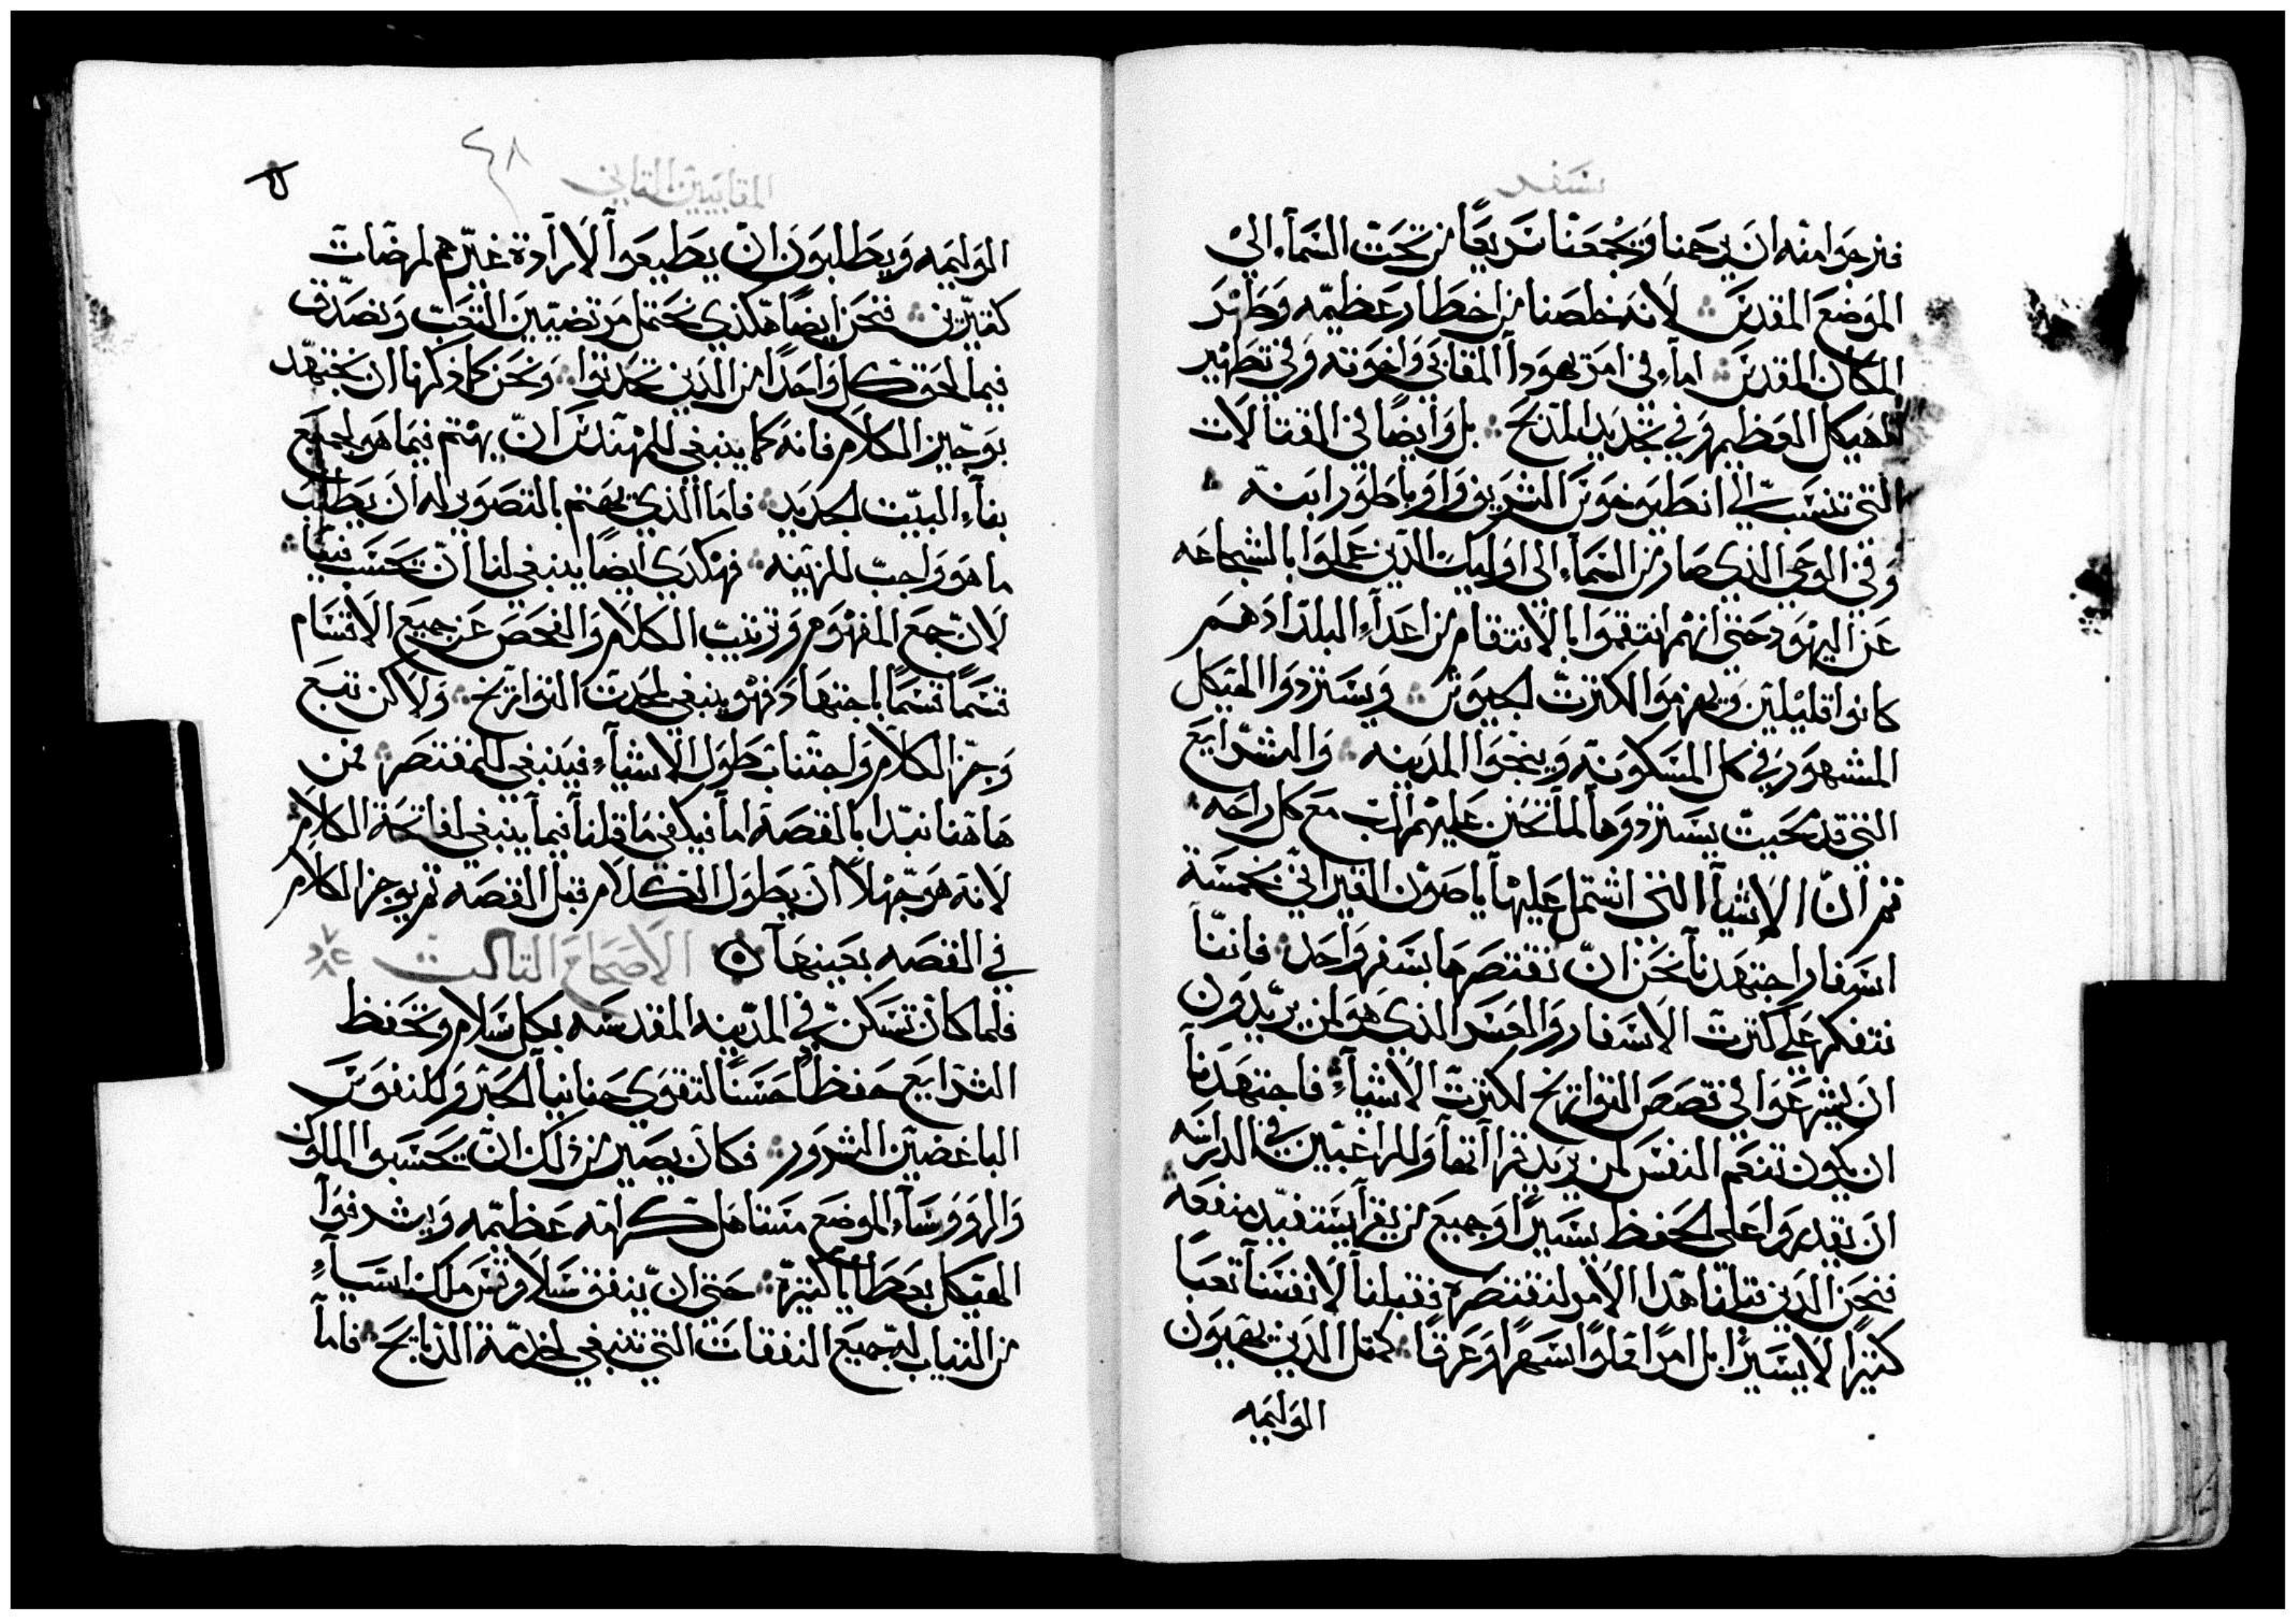 سفر
فنرجوا منه ان يرحمنا ويجمعنا سريعًا من تحت السمآء الى
الموضع المقدس لانه خلصنا من اخطار عظيمه وطهر
المكان المقدس امآ في امر يهودا المقابي واخوته وفي تطهير
الهيكل العظيم وفي تجديد المدبح بل وايضًا في القتالات
التي تنسب الي انطيوخوس الشريف واوباطور ابنه
وفي الوحي الذي صار من السمآء الى اوليك الذين عملوا بالشجاعه
عن اليهود حتى انهم انتقموا بالانتقام من اعدآء البلد اذ هم
كانوا قليلين ويهزموا لكثرت الجيوش ويستردوا الهيكل
المشهور في كل المسكونه وينجوا المدينه والشرايع
التي قد محيت يستردوها لما تحنن عليهم الرب مع كل راحه
ثم ان الاشيآ التي اشتمل عليها ياصون القيراني بخمسة
اسفار اجتهدنا نحن ان نقتصرها بسفر واحد فاننا
نتفكر على كثرت الاسفار والعسر الذي هو لمن يريدون
ان يشرعوا في قصص التواريخ لكثرت الاشيآء فاجتهدنا
ان يكون تنعم النفس لمن يريد قرااتها وللراغبين في الدراسه
ان يقدروا على الحفظ يسيرًا وجميع من يقرا يستفيد منفعه
فنحن الدين قبلنا هدا الامر لنقتصره فقبلنا لانفسنا تعبًا
كثيرًا لا يسيرًا بل امرًا مملوًا سهرًا وعرقًا كمثل الدين يهيون
الوليمه
المقابيين التاني
٤٨
الوليمه ويطلبون ان يطيعوا لارادة غيرهم لمرضات
كثيرين فنحن ايضًا هكذي نحتمل مرتضيين التعب ونصدق
فيما لحق كل واحدًا من الذين تحدثوا ونحن كما ذكرنا ان نجتهد
بوجيز الكلام فانه كما ينبغي للمهندس ان يهتم فيما هو لجميع
بنآء البيت الجديد فاما الذي يهتم بالتصوير له ان يطلب
ما هو واجب للزينه فهكذي ايضًا ينبغي لنا ان تحسب فينا
لان جمع المفهوم وترتيب الكلام والفحص عن جميع الاقسام
قسمًا قسمًا باجتهاد فهو ينبغي لمحدث التواريخ ولاكن تتبع
وجز الكلام واجتناب طول الاشيآء فينبغي للمقتصر فمن
هاهنا نبدا بالقصة اما فيكفي ما قلنا فيما ينبغي لفاتحة الكلام
لانه هو جهلا ان يطول الكلام قبل القصه ثم يوجز الكلام
في القصه بعينها الاصحاح التالت
فلما كان تسكن في المدينه المقدسه بكل سلام وتحفظ
الشرايع حفظًا حسنًا لتقوي حنانيا الحبر وللنفوس
الباغضين الشرور فكان يصير من ذلك ان تحسبوا الملوك
والرووسآء الموضع مستاهل كرامه عظيمه ويشرفوا
الهيكل بعطايا كثيرة حتى ان ينفق سلاوقس ملك اسيآء
من التياب له جميع النفقات التي تنبغي لخدمة الدبايح فاما